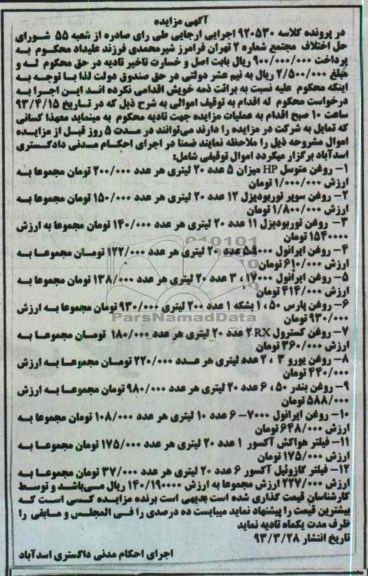 آگهی مزایده
در پرونده کلاسه ۹۲۰۵۳۰ اجرایی ارجایی طی رای صادره از شعبه ۵۵ شورای
حل اختلاف مجتمع شماره ۲ تهران فرامرز شیرمحمدی فرزند علیداد محکوم به
پرداخت ۹۰۰/۰۰۰/۰۰۰ ریال بابت اصل و خسارت تاخیر تادیه در حق محکوم له و
مبلغ ۲/۵۰۰/۰۰۰ ریال به نیم عشر دولتی در حق صندوق دولت لذا با توجه به
اینکه محکوم علیه نسبت به برائت ذمه خویش اقدامی نکرده اند این اجرا به
درخواست محکوم له اقدام به توقیف اموالی به شرح ذیل که در تاریخ ۹۳/۴/۱۵
ساعت ۱۰ صبح اقدام به عملیات مزایده جهت تادیه محکوم به مینماید معهذا کسانی
که تمایل به شرکت در مزایده را دارند می‌توانند در مدت ۵ روز قبل از مزایده
اموال مشروحه ذیل را ملاحظه نمایند ضمنا در اجرای احکام مدنی دادگستری
اسدآباد برگزار میگردد اموال توقیفی شامل:
۱- روغن متوسل HP میزان ۵ عدد ۲۰ لیتری هر عدد ۲۰۰/۰۰۰ تومان مجموعا به
ارزش ۱/۰۰۰/۰۰۰ تومان
۲- روغن سوپر توربودیزل ۱۲ عدد ۲۰ لیتری هر عدد ۱۵۰/۰۰۰ تومان مجموعا به
ارزش ۱/۸۰۰/۰۰۰ تومان
۳- روغن توربودیزل ۱۱ عدد ۲۰ لیتری هر عدد ۱۴۰/۰۰۰ تومان مجموعا به ارزش
۱۵۴۰۰۰۰ تومان
۴- روغن ایرانول ۵۸۰۰۰ عدد ۲۰ لیتری هر عدد ۱۲۲/۰۰۰ تومان مجموعا به
ارزش ۶۱۰/۰۰۰ تومان
۵- روغن ایرانول ۱۷۰۰۰ ۳ عدد ۲۰ لیتری هر عدد ۱۳۸/۰۰۰ تومان مجموعا به
ارزش ۴۱۴/۰۰۰ تومان
۶- روغن پارس ۵۰، ۱ بشکه ۱ عدد ۲۰۰ لیتری ۹۳۰/۰۰۰ تومان مجموعا به ارزش
۹۳۰/۰۰۰ تومان
۷- روغن کسترول RX ۲ عدد ۲۰ لیتری هر عدد ۱۸۰/۰۰۰ تومان مجموعا به
ارزش ۳۶۰/۰۰۰ تومان
۸- روغن یورو ۳ ، ۲ عدد لیتری هر عدد ۲۲۰/۰۰۰ تومان مجموعا به ارزش
۴۴۰/۰۰۰ تومان
۹- روغن بندر ۵۰، ۶ عدد ۲۰ لیتری هر عدد ۹۸۰/۰۰۰ تومان مجموعا به ارزش
۵۸۸/۰۰۰ تومان
۱۰- روغن ایرانول ۷۰۰۰- ۶ عدد ۱۰ لیتری هر عدد ۱۰۸/۰۰۰ تومان مجموعا به
ارزش ۶۴۸/۰۰۰ تومان
۱۱- فیلتر هواکش آکسور ۱ عدد ۲۰ لیتری هر عدد ۱۷۵/۰۰۰ تومان مجموعا به
ارزش ۱۷۵/۰۰۰ تومان
۱۲- فیلتر گازوئیل آکسور ۶ عدد ۲۰ لیتری هر عدد ۳۷/۰۰۰ تومان مجموعا به
ارزش ۲۲۷/۰۰۰ تومان مجموعا به ارزش ۱۴۰/۱۹۰۰۰۰ ریال می‌باشد و توسط
کارشناسان قیمت گذاری شده است بدیهی است برنده مزایده کسی است که
بیشترین قیمت را پیشنهاد نماید میبایست ده درصدی را فی المجلس و مابقی را
ظرف مدت یکماه تادیه نماید
تاریخ انتشار ۹۳/۳/۲۸
اجرای احکام مدنی دادگستری اسدآباد
ParsNamadData